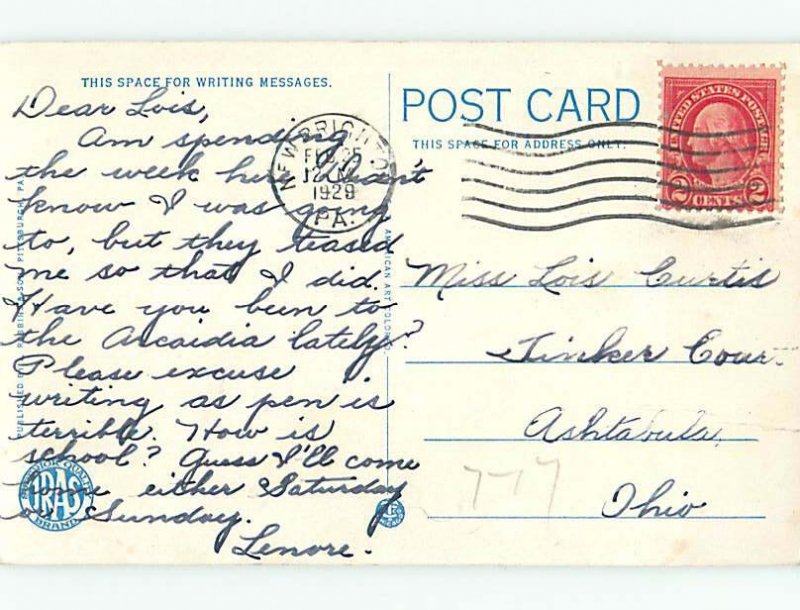 THIS SPACE FOR WRITING MESSAGES.
Dear Lois,
Am spending
the week here. Didn't
know I was going
to, but they teased
me so that I did.
Have you been to
the Arcaidia lately?
Please excuse
writing as pen is
terrible. How is
school? Guess I'll come
home either Saturday
or Sunday.
Lenore.
NEW BRIGHTON
FEB 25
12 M
1929
PA.
POST CARD
THIS SPACE FOR ADDRESS ONLY.
UNITED STATES POSTAGE
2 CENTS 2
Miss Lois Curtis
Tinker Court
Ashtabula,
Ohio
777
PITTSBURGH, PA.
AMERICAN ART COLORED.
QUALITY
BRAND